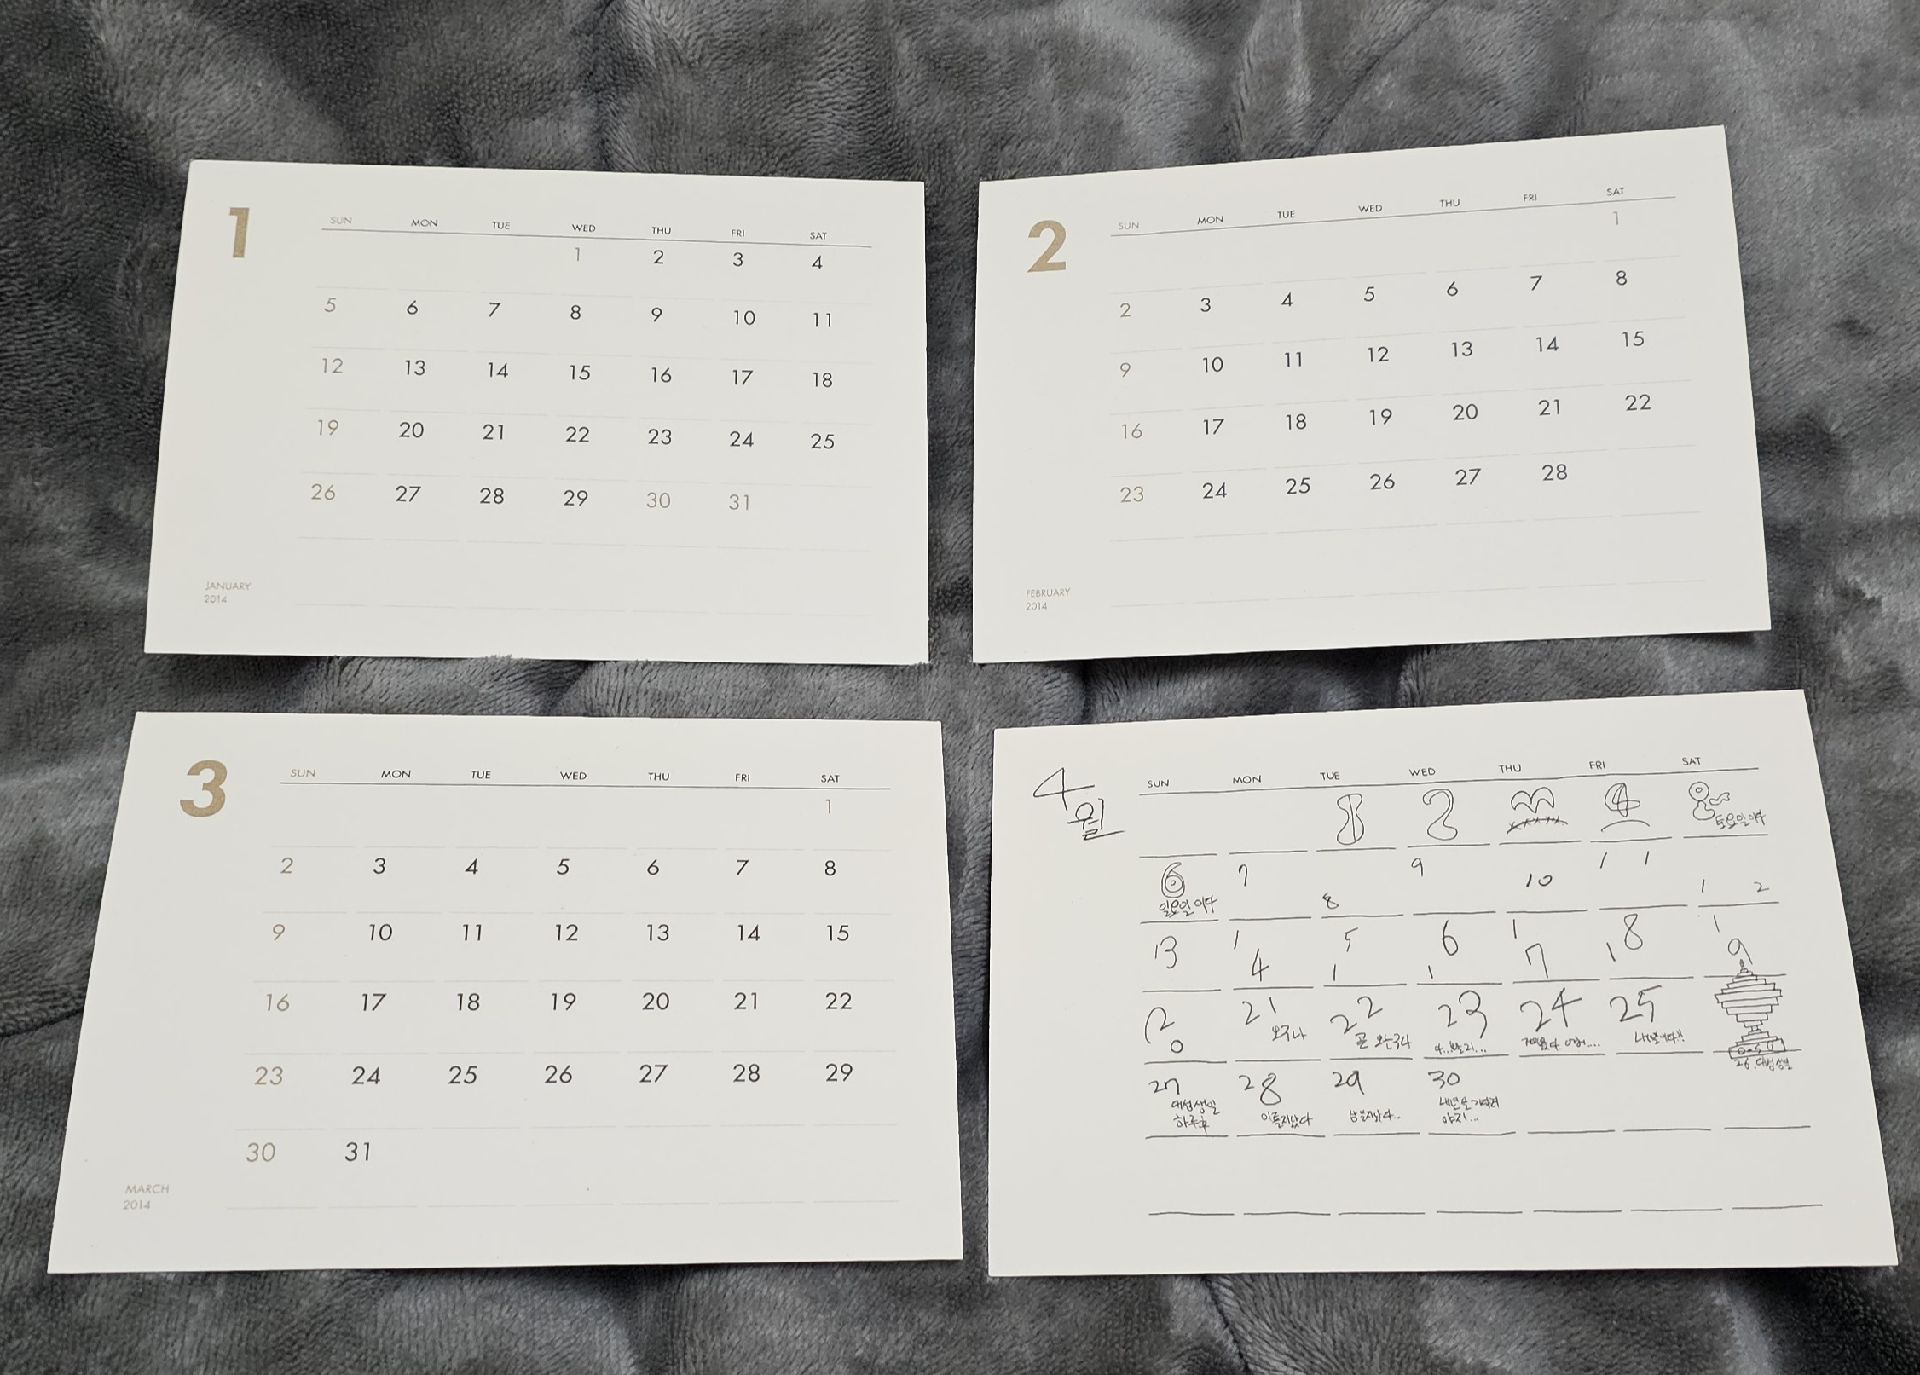 1
SUN MON TUE WED THU FRI SAT
1 2 3 4
5 6 7 8 9 10 11
12 13 14 15 16 17 18
19 20 21 22 23 24 25
26 27 28 29 30 31
JANUARY
2014
2
SUN MON TUE WED THU FRI SAT
1
2 3 4 5 6 7 8
9 10 11 12 13 14 15
16 17 18 19 20 21 22
23 24 25 26 27 28
FEBRUARY
2014
3
SUN MON TUE WED THU FRI SAT
1
2 3 4 5 6 7 8
9 10 11 12 13 14 15
16 17 18 19 20 21 22
23 24 25 26 27 28 29
30 31
MARCH
2014
4월
SUN MON TUE WED THU FRI SAT
1 2 3 4 5
토요일이다
6 7 8 9 10 11 12
일요일이다
13 14 15 16 17 18 19
20 21 22 23 24 25
오구나 곧 오는구나
26. 대성생일
27 28 29 30
대성생일 이틀지났다
하루후